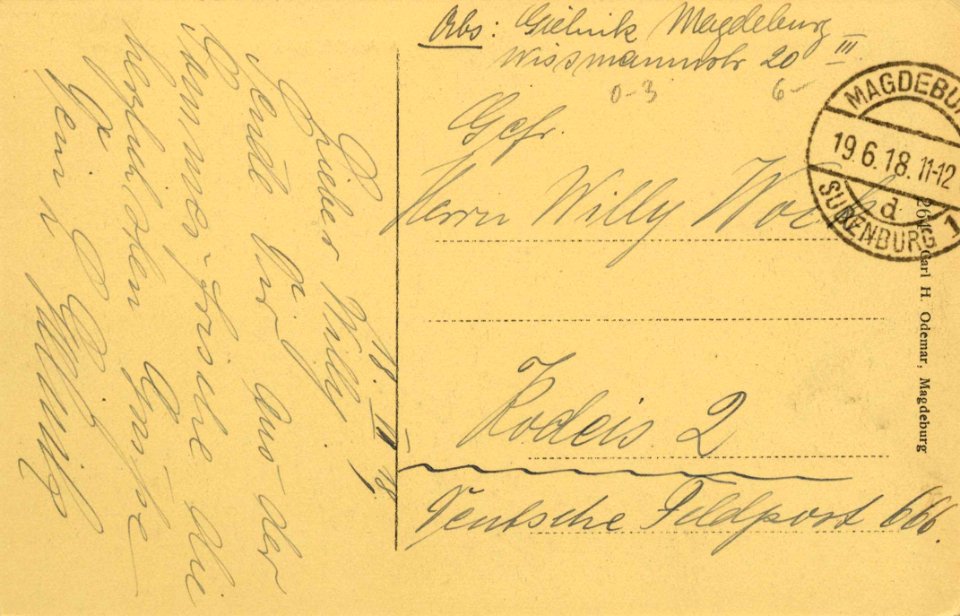 18. VI. 18.
Lieber Willy!
Sende Dir aus der
Sommerfrische die
herzlichsten Grüße
Dein
Abs: Gielnik Magdeburg
Wissmannstr 20 III
0-3 6-
Gefr.
Herrn Willy
Kodeis 2
Deutsche Feldpost 666.
MAGDEBURG
19.6.18.11-12
d
SUDENBURG 1
Carl H. Odemar, Magdeburg